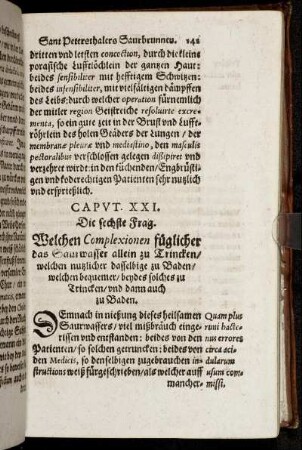 Sant Petersthalers Saurbrunnen. 242
dritten und letsten concoction, durch die kleine
porosische Lufftlöchlein der gantzen Haut:
beides sensibiliter mit hefftigem Schwitzen:
beides insensibiliter, mit vielfältigen dämpffen
des Leibs: durch welcher operation fürnemlich
der mitler region Geistreiche resoluirte excre-
menta, so ein gute zeit in der Brust und Lufft-
röhrlein des holen Geäders der Lungen / der
membranæ pleuræ und mediastino, den masculis
pectoralibus verschlossen gelegen dissipiret und
verzehret wirdt: in den kuchenden / Engbrüsti-
gen und koderechtigen Patienten sehr nutzlich
und ersprießlich.
CAPVT. XXI.
Die sechste Frag.
Welchen Complexionen füglicher
das Saurwasser allein zu Trincken /
welchen nutzlicher dasselbige zu Baden /
welchen bequemer / beydes solches zu
Trincken / und dann auch
zu Baden.
DEmnach in niessung dieses heilsamen
Saurwassers / viel mißbräuch einge-
rissen und entstanden: beides von den
Patienten / so solchen getruncken: beides von
den Medicis, so denselbigen zugebrauchen in-
structions weiß fürgeschrieben / als welcher auff
mancher-
Quam plu-
rimi hacte-
nus errores
circa aci-
dularum
usum com-
missi.